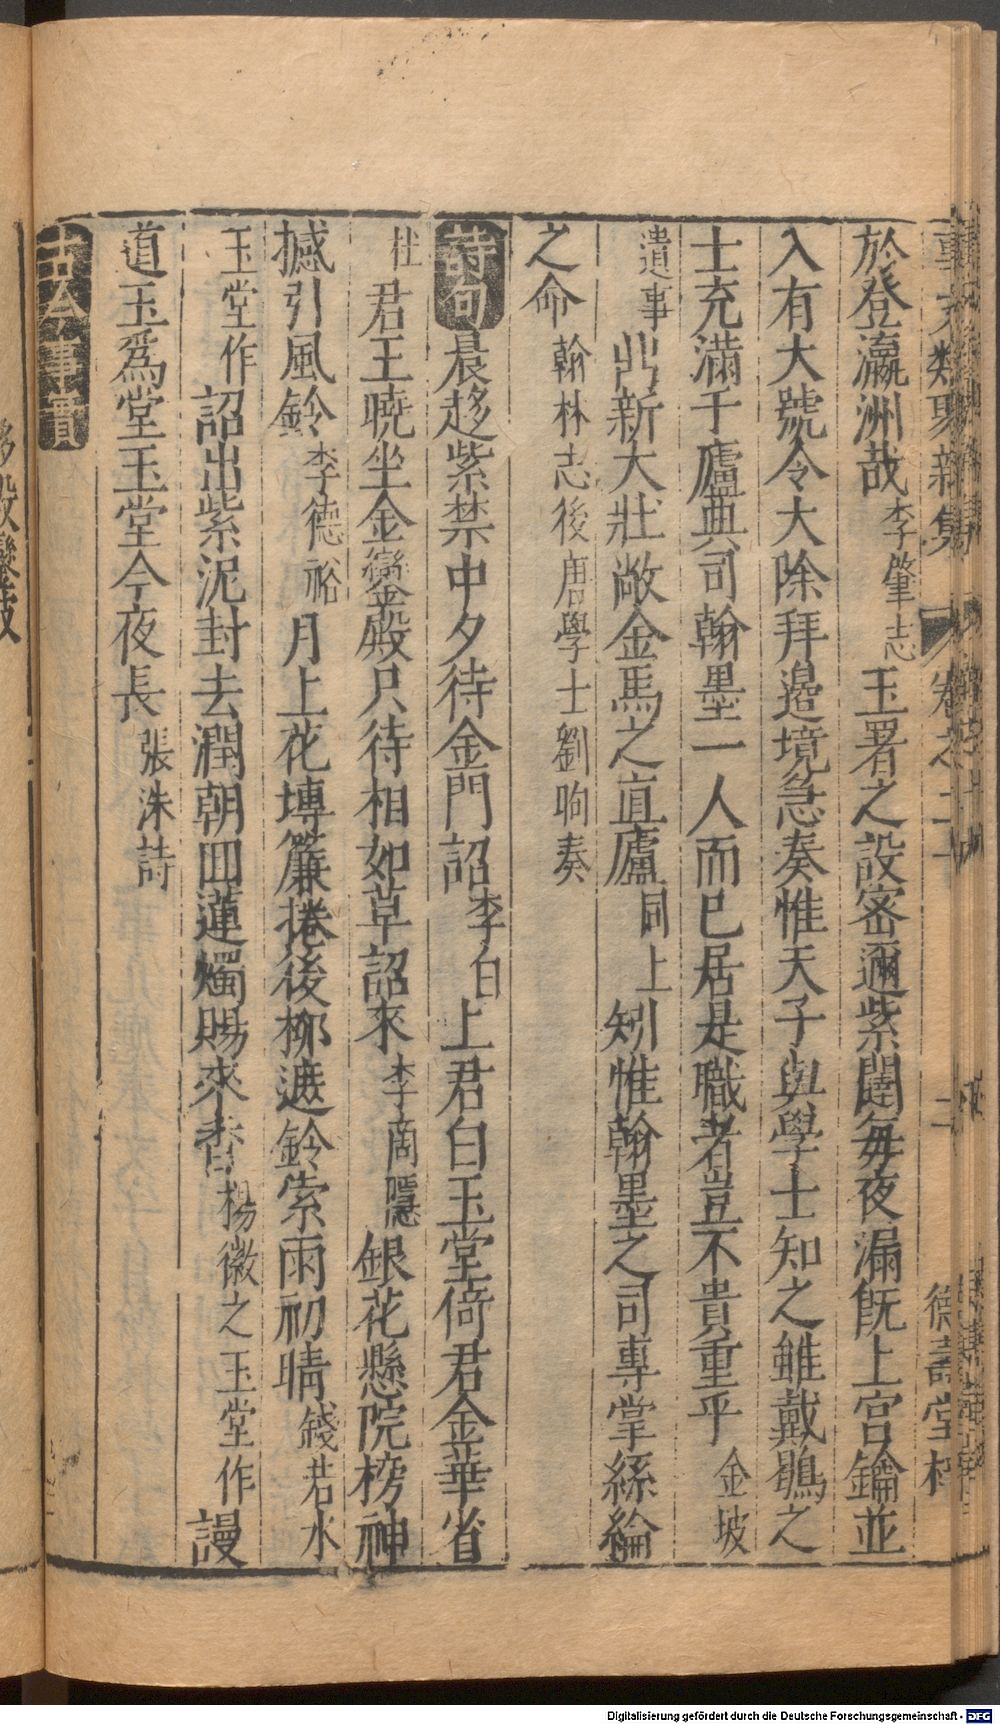 事文類聚新集 卷之二十 二 德壽堂梓
於登瀛洲哉李肇志 玉署之設密邇紫闥每夜漏旣上宮鑰並
入有大號令大除拜邉境急奏惟天子與學士知之雖戴鶡之
士充滿于廬典司翰墨一人而已居是職者豈不貴重乎金坡
遺事 岀新大壯敞金馬之直廬同上 矧惟翰墨之司專掌絲綸
之命翰林志後唐學士劉昫奏
詩句 晨趍紫禁中夕待金門詔李白 上君白玉堂倚君金華省
杜 君王曉坐金鑾殿只待相如草詔來李商隱 銀花懸院榜神
撼引風鈴李德裕 月上花塼簾捲後柳遮鈴索雨初晴錢若水
玉堂作 詔出紫泥封去潤朝回蓮燭賜來香楊徽之玉堂作 謾
道玉爲堂玉堂今夜長張洙詩
古今事實
Digitalisierung gefördert durch die Deutsche Forschungsgemeinschaft - DFG